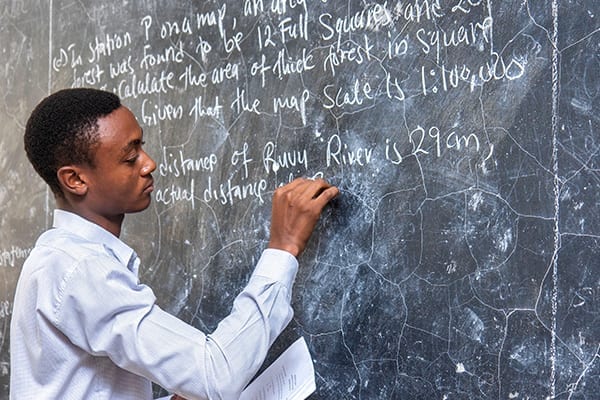 (e) In Station P on a map, an area
forest was found to be 12 Full Squares and
Calculate the area of thick forest in Square
Given that the map Scale is 1:100,000
distance of Ruvu River is 29cm,
actual distance